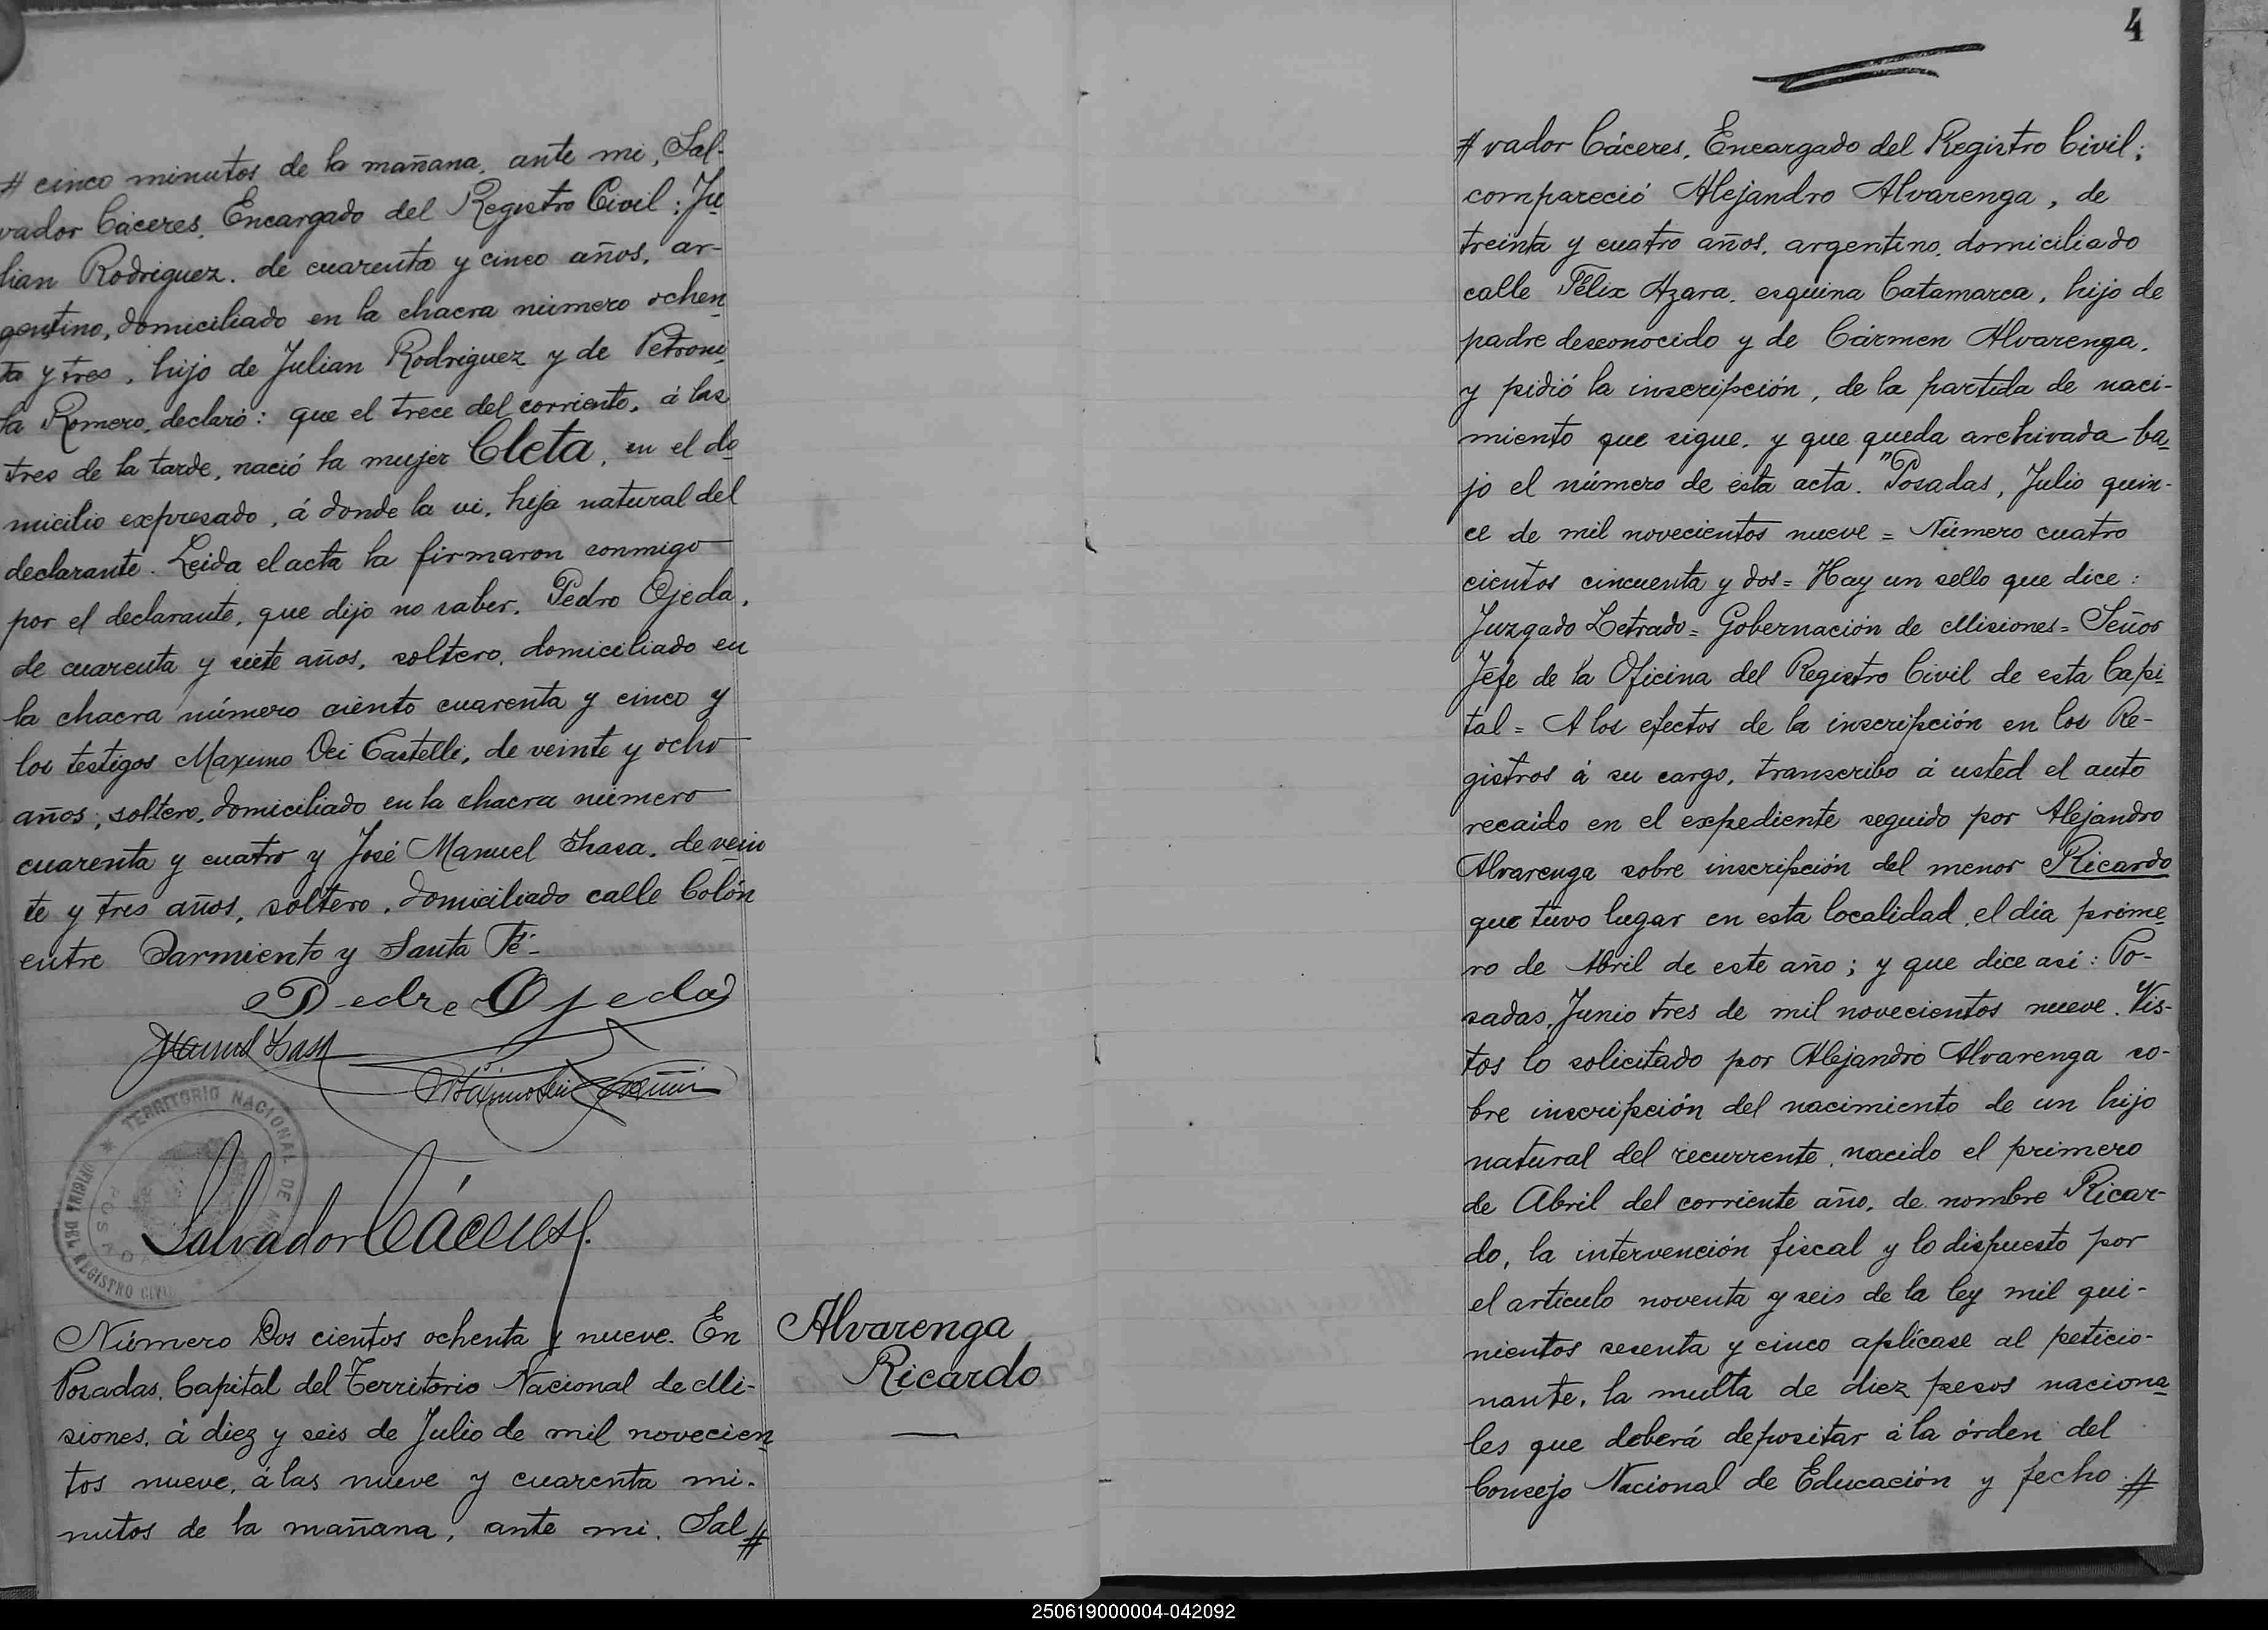 # cinco minutos de la mañana, ante mi, Sal-
vador Cáceres, Encargado del Registro Civil; Ju
lian Rodriguez, de cuarenta y cinco años, ar-
gentino, domiciliado en la chacra número ochen
ta y tres, hijo de Julian Rodriguez y de Petroni
la Romero, declaró: que el trece del corriente, á las
tres de la tarde, nació la mujer Cleta, en el do
micilio expresado, á donde la vi, hija natural del
declarante. Leida el acta la firmaron conmigo
por el declarante, que dijo no saber, Pedro Ojeda,
de cuarenta y siete años, soltero, domiciliado en
la chacra número ciento cuarenta y cinco y
los testigos Maximo Dei Castelli, de veinte y ocho
años, soltero, domiciliado en la chacra número
cuarenta y cuatro y José Manuel de vein
te y tres años, soltero, domiciliado calle Colón
entre Sarmiento y Santa Fé-
Pedro Ojeda
TERRITORIO NACIONAL DE
REGISTRO CIVIL
Salvador Cáceres
Número Dos cientos ochenta y nueve. En
Posadas, Capital del Territorio Nacional de Mi-
siones, á diez y seis de Julio de mil novecien
tos nueve, á las nueve y cuarenta mi-
nutos de la mañana, ante mi, Sal #
Alvarenga
Ricardo
4
# vador Cáceres, Encargado del Registro Civil;
compareció Alejandro Alvarenga, de
treinta y cuatro años, argentino, domiciliado
calle Félix Azara, esquina Catamarca, hijo de
padre desconocido y de Cármen Alvarenga,
y pidió la inscripción, de la partida de naci-
miento que sigue, y que queda archivada ba
jo el número de esta acta. "Posadas, Julio quin-
ce de mil novecientos nueve = Número cuatro
cientos cincuenta y dos = Hay un sello que dice:
Juzgado Letrado = Gobernación de Misiones = Señor
Jefe de la Oficina del Registro Civil de esta Capi
tal = A los efectos de la inscripción en los Re-
gistros á su cargo, transcribo á usted el auto
recaido en el expediente seguido por Alejandro
Alvarenga sobre inscripción del menor Ricardo
que tuvo lugar en esta localidad, el dia prime
ro de Abril de este año; y que dice asi: Po-
sadas, Junio tres de mil novecientos nueve. Vis-
tos lo solicitado por Alejandro Alvarenga so-
bre inscripción del nacimiento de un hijo
natural del recurrente, nacido el primero
de Abril del corriente año, de nombre Ricar-
do, la intervención fiscal y lo dispuesto por
el articulo noventa y seis de la ley mil qui-
nientos sesenta y cinco aplícase al peticio-
nante, la multa de diez pesos naciona
les que deberá depositar á la órden del
Consejo Nacional de Educación y fecho #
250619000004-042092